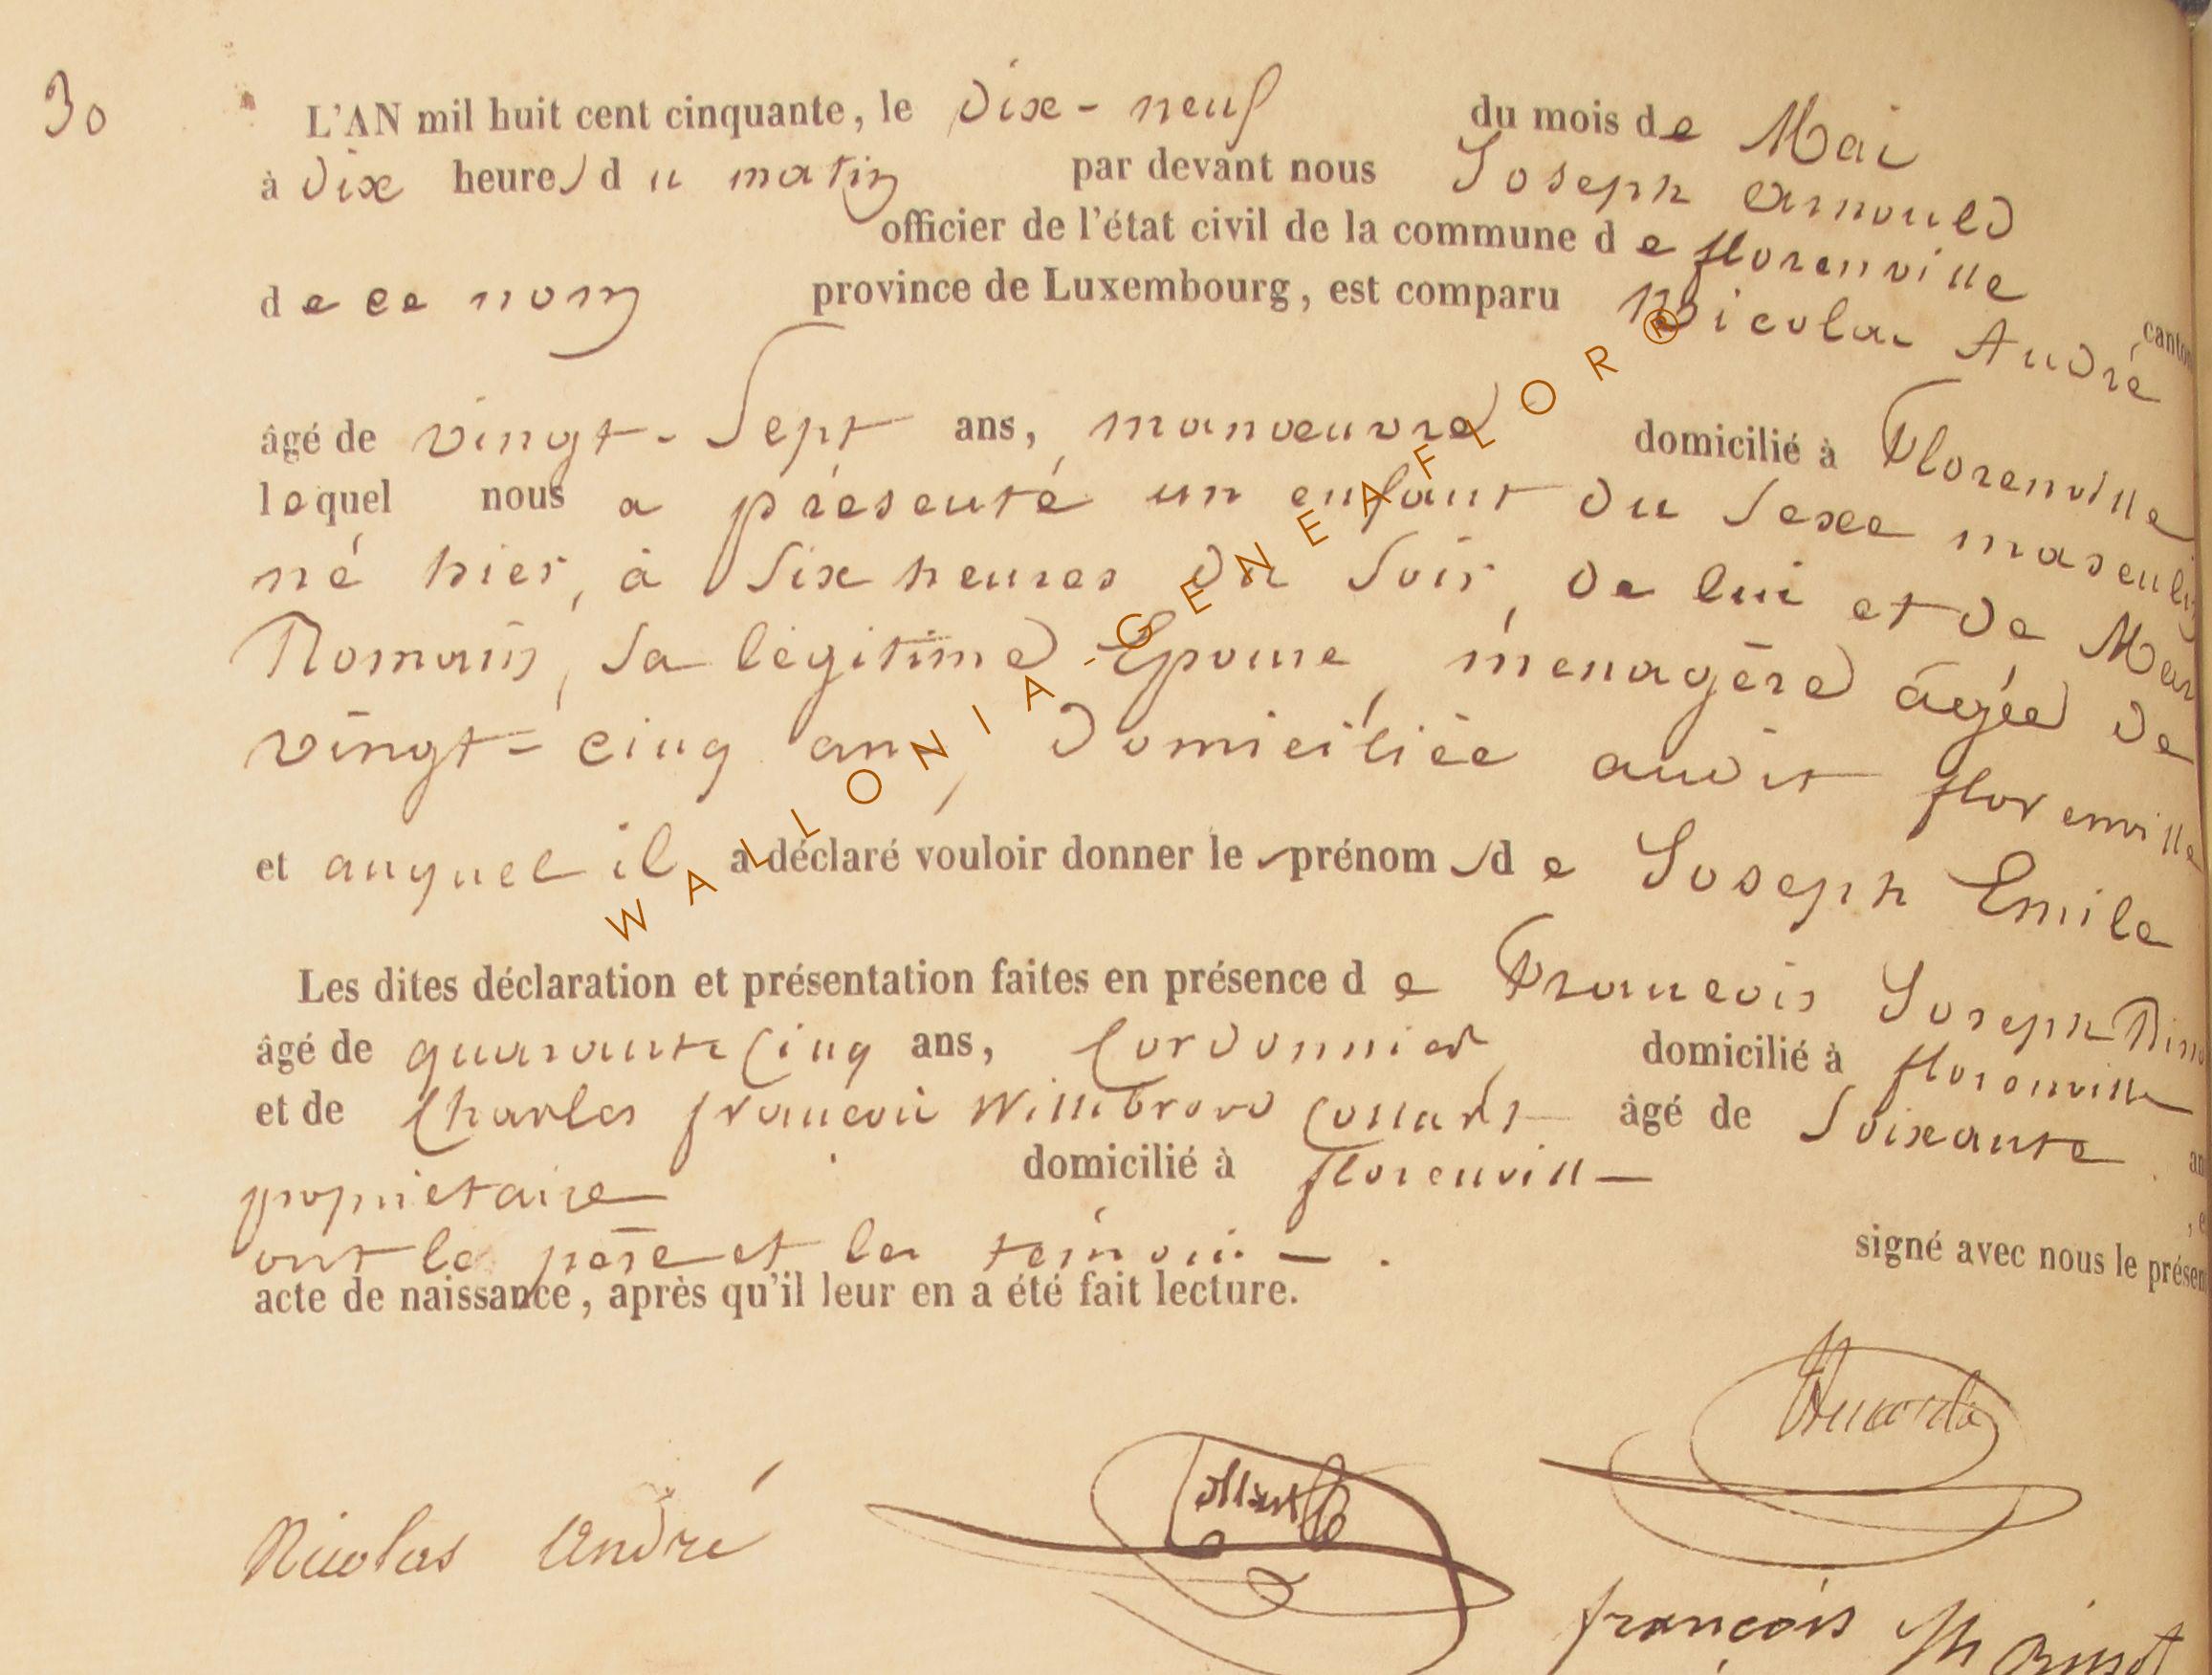 30
L'AN mil huit cent cinquante, le Dix-neuf du mois de Mai
à Dix heures du matin par devant nous Joseph Arnould
officier de l'état civil de la commune de florenville canton
de ce nom province de Luxembourg, est comparu Nicolas André
âgé de vingt-Sept ans, manoeuvre domicilié à Florenville
lequel nous a présenté un enfant du Sexe masculin
né hier, à Six heures du Soir, de lui et de
Romain, Sa légitime Epouse, ménagère âgée de
vingt-cinq ans, Domiciliée audit florenville
et auquel il a déclaré vouloir donner les prénoms de Joseph Emile
Les dites déclaration et présentation faites en présence de François Joseph
âgé de quarante Cinq ans, Cordonnier domicilié à florenville
et de Charles françois Willibrord Collart âgé de Soixante ans
propriétaire domicilié à florenville
ont le père et les témoins signé avec nous le présent
acte de naissance, après qu'il leur en a été fait lecture.
Nicolas André
Collart
françois
WALLONIA-GENEAFLOR®